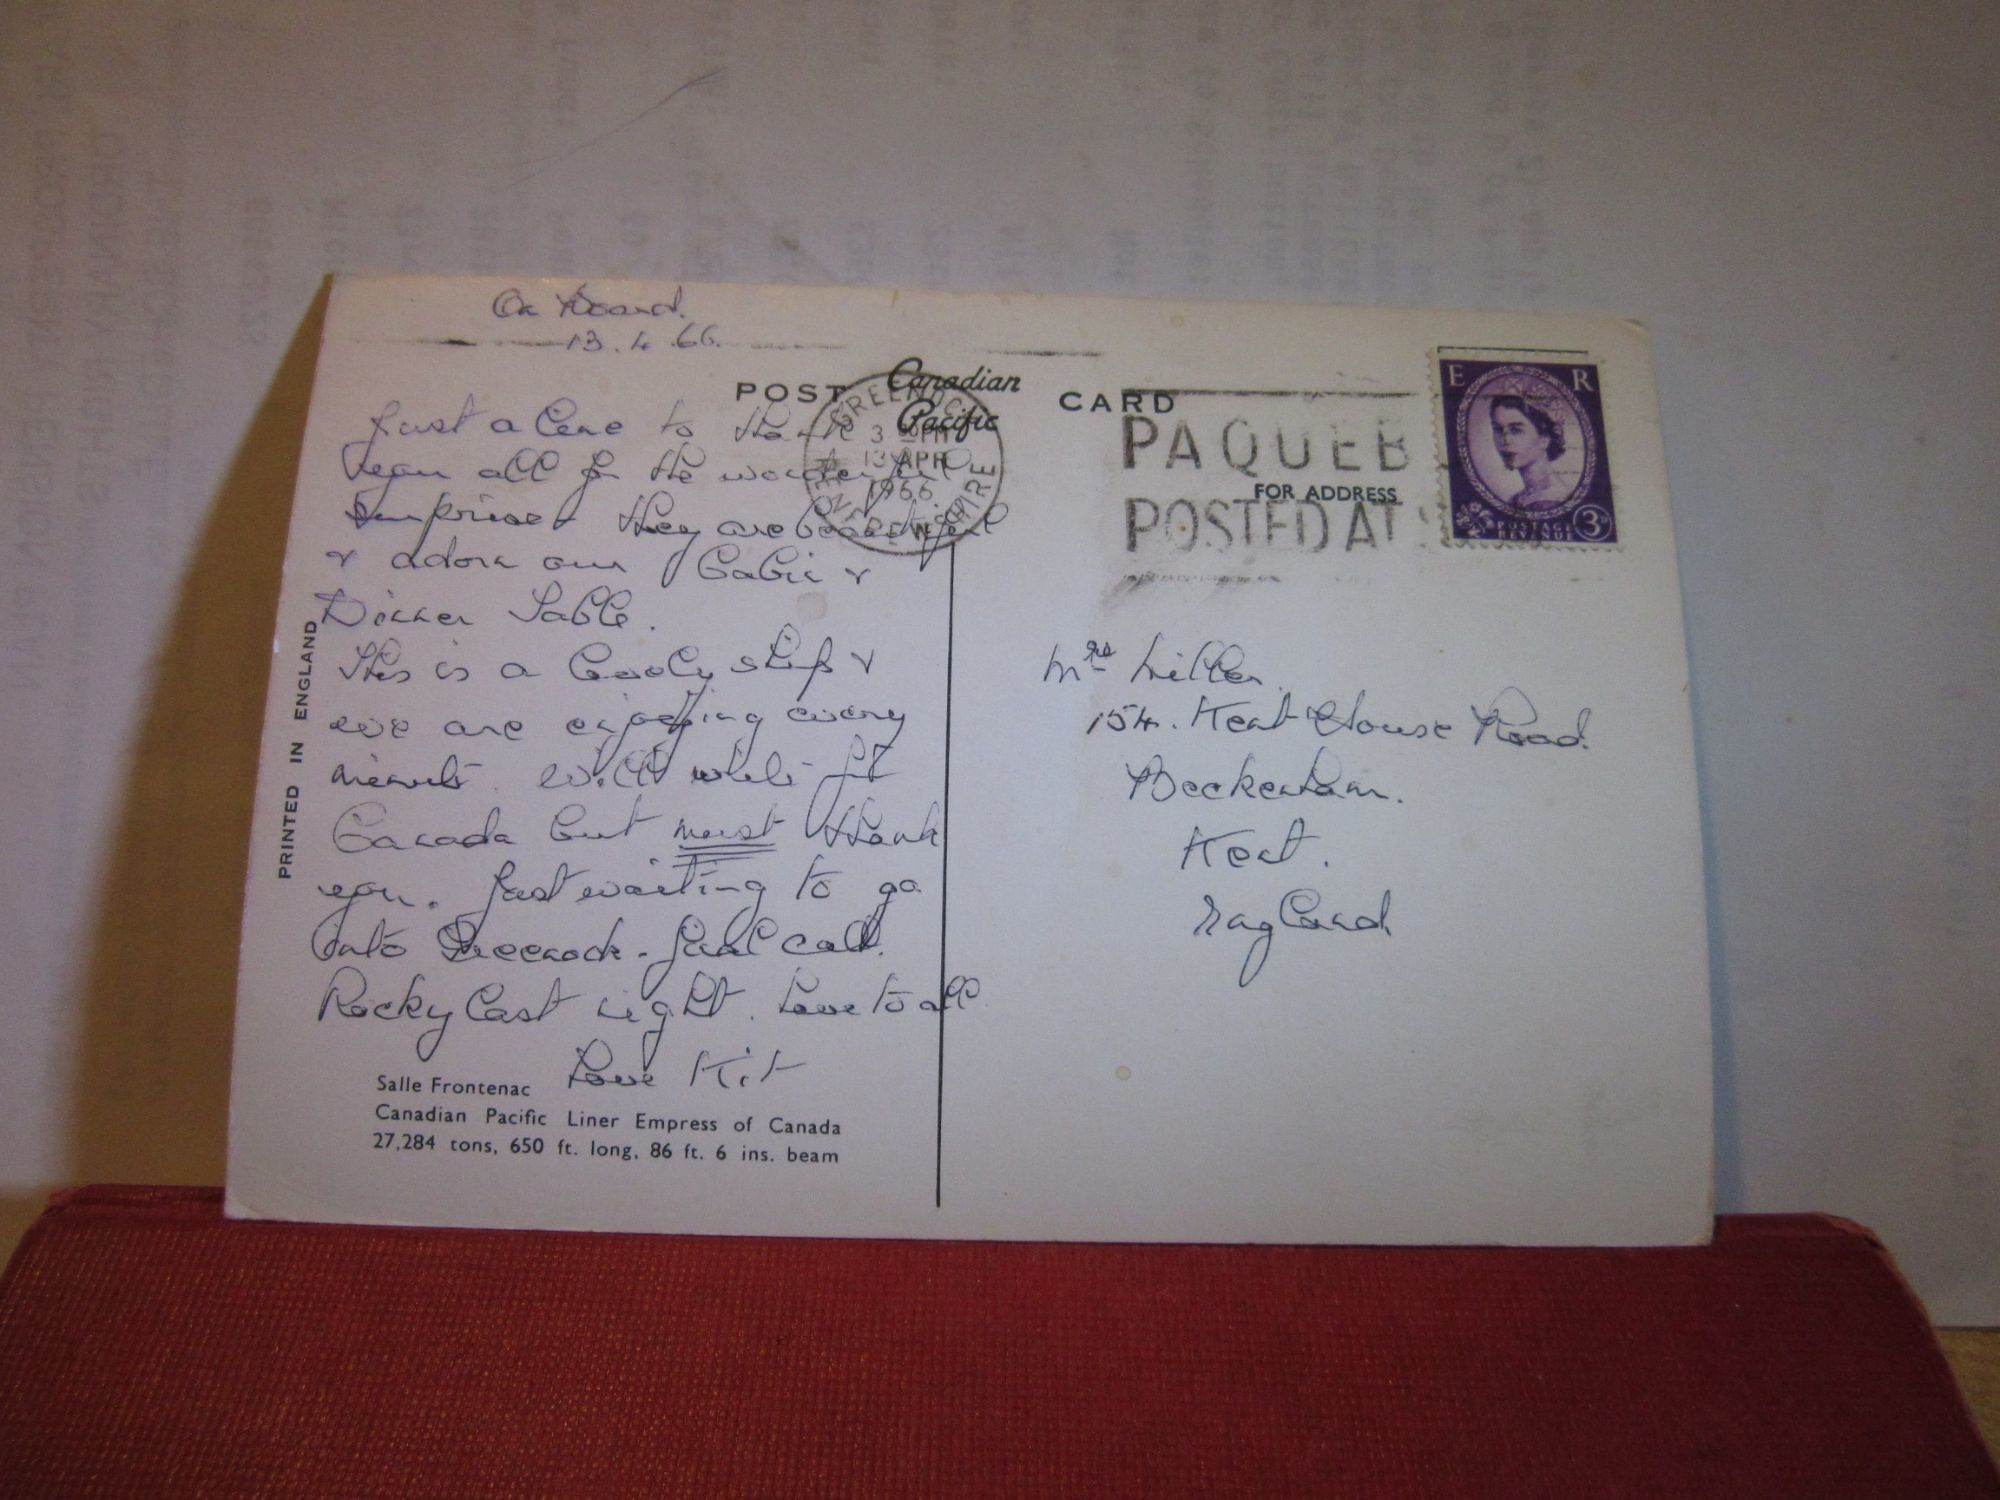 On Board.
13.4.66.
POST Canadian Pacific CARD
GREENOCK
3 - PM
13 APR
1966
RENFREWSHIRE
PAQUEB
POSTED AT
FOR ADDRESS
E R
POSTAGE
REVENUE
3D
Just a line to thank
you all for the wonderful
surprise - they are beautiful
& adorn our Cabin &
Dinner Table.
This is a lovely ship &
we are enjoying every
minute. Will write fr
Canada but must thank
you. Just waiting to go
into Greenock - final call.
Rocky last night. Love to all
Love Kit
PRINTED IN ENGLAND
Salle Frontenac
Canadian Pacific Liner Empress of Canada
27,284 tons, 650 ft. long, 86 ft. 6 ins. beam
Mrs
154. Kent House Road.
Beckenham.
Kent.
England.